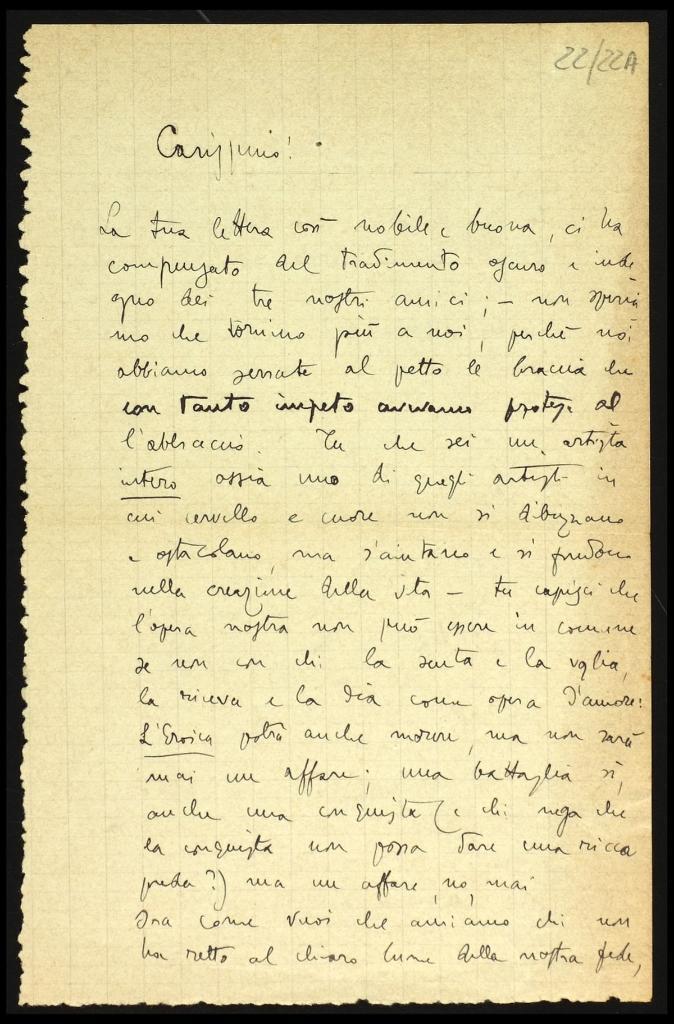 22/22A
Carissimo!
La tua lettera così nobile e buona, ci ha
compensato del tradimento oscuro e inde
gno dei tre nostri amici; – non speria
mo che tornino più a noi, perché noi
abbiamo serrate al petto le braccia che
con tanto impeto avevamo protese al
l'abbraccio. Tu che sei un artista
intero ossia uno di quegli artisti in
cui cervello e cuore non si
e ostacolano, ma s'aiutano e si fondono
nella creazione della vita – tu capisci che
l'opera nostra non può essere in comune
se non con chi la senta e la voglia,
la riceva e la dia come opera d'amore:
L'Eroica potrà anche morire, ma non sarà
mai un affare; una battaglia sì,
anche una conquista (e chi nega che
la conquista non possa dare una ricca
preda?) ma un affare, no, mai
Ora come vuoi che amiamo chi non
ha retto al chiaro lume della nostra fede,